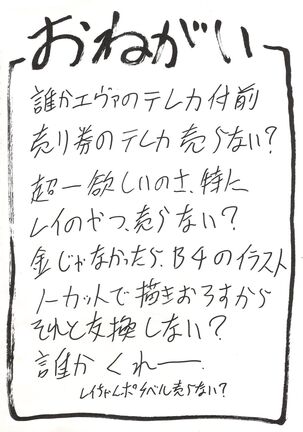 おねがい
誰かエヴァのテレカ付前
売り券のテレカ売らない?
超一欲しいのさ、特に
レイのやつ、売らない?
金じゃなかったら、B4のイラスト
ノーカットで描きおろすから
それと交換しない?
誰か くれー
レイちゃん 売らない?